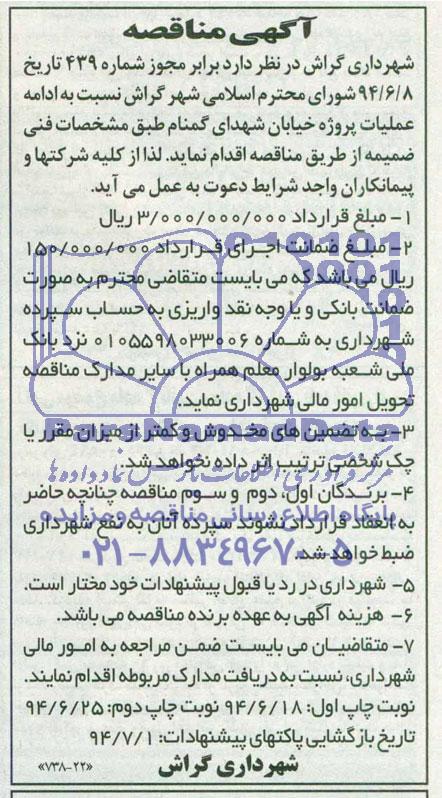 آگهی مناقصه
شهرداری گراش در نظر دارد برابر مجوز شماره ۴۳۹ تاریخ
۹۴/۶/۸ شورای محترم اسلامی شهر گراش نسبت به ادامه
عملیات پروژه خیابان شهدای گمنام طبق مشخصات فنی
ضمیمه از طریق مناقصه اقدام نماید. لذا از کلیه شرکتها و
پیمانکاران واجد شرایط دعوت به عمل می آید.
۱- مبلغ قرارداد ۳/۰۰۰/۰۰۰/۰۰۰ ریال
۲- مبلغ ضمانت اجرای قرارداد ۱۵۰/۰۰۰/۰۰۰
ریال می باشد که می بایست متقاضی محترم به صورت
ضمانت بانکی و یا وجه نقد واریزی به حساب سپرده
شهرداری به شماره ۰۱۰۵۵۹۸۰۳۳۰۰۶ نزد بانک
ملی شعبه بولوار معلم همراه با سایر مدارک مناقصه
تحویل امور مالی شهرداری نماید.
۳- به تضمین های مخدوش و کمتر از میزان مقرر یا
چک شخصی ترتیب اثر داده نخواهد شد.
مرکز فرآوری اطلاعات پارس نماد داده ها
۴- برندگان اول، دوم و سوم مناقصه چنانچه حاضر
پایگاه اطلاع رسانی مناقصه و مزایده
به انعقاد قرارداد نشوند سپرده آنان به نفع شهرداری
ضبط خواهد شد.
۰۲۱-۸۸۳۴۹۶۷۰-۵
۵- شهرداری در رد یا قبول پیشنهادات خود مختار است.
۶- هزینه آگهی به عهده برنده مناقصه می باشد.
۷- متقاضیان می بایست ضمن مراجعه به امور مالی
شهرداری، نسبت به دریافت مدارک مربوطه اقدام نمایند.
نوبت چاپ اول: ۹۴/۶/۱۸ نوبت چاپ دوم: ۹۴/۶/۲۵
تاریخ بازگشایی پاکتهای پیشنهادات: ۹۴/۷/۱
شهرداری گراش
«۷۳۸-۲۲»